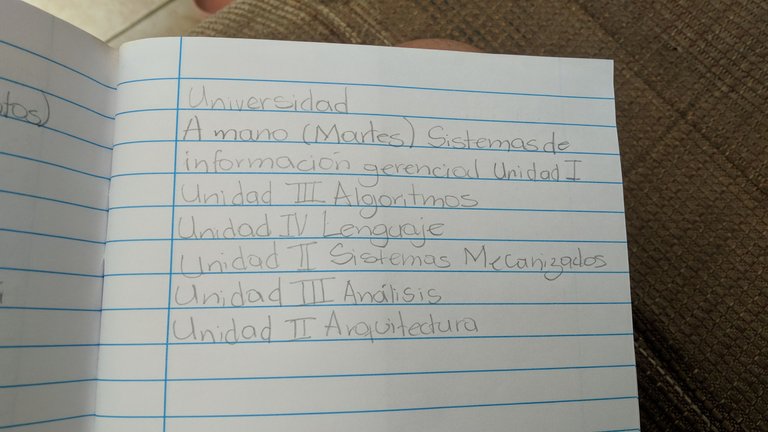 tos)
Universidad
A mano (Martes) Sistemas de
información gerencial Unidad I
Unidad III Algoritmos
Unidad IV Lenguaje
Unidad II Sistemas Mecanizados
Unidad III Análisis
Unidad II Arquitectura